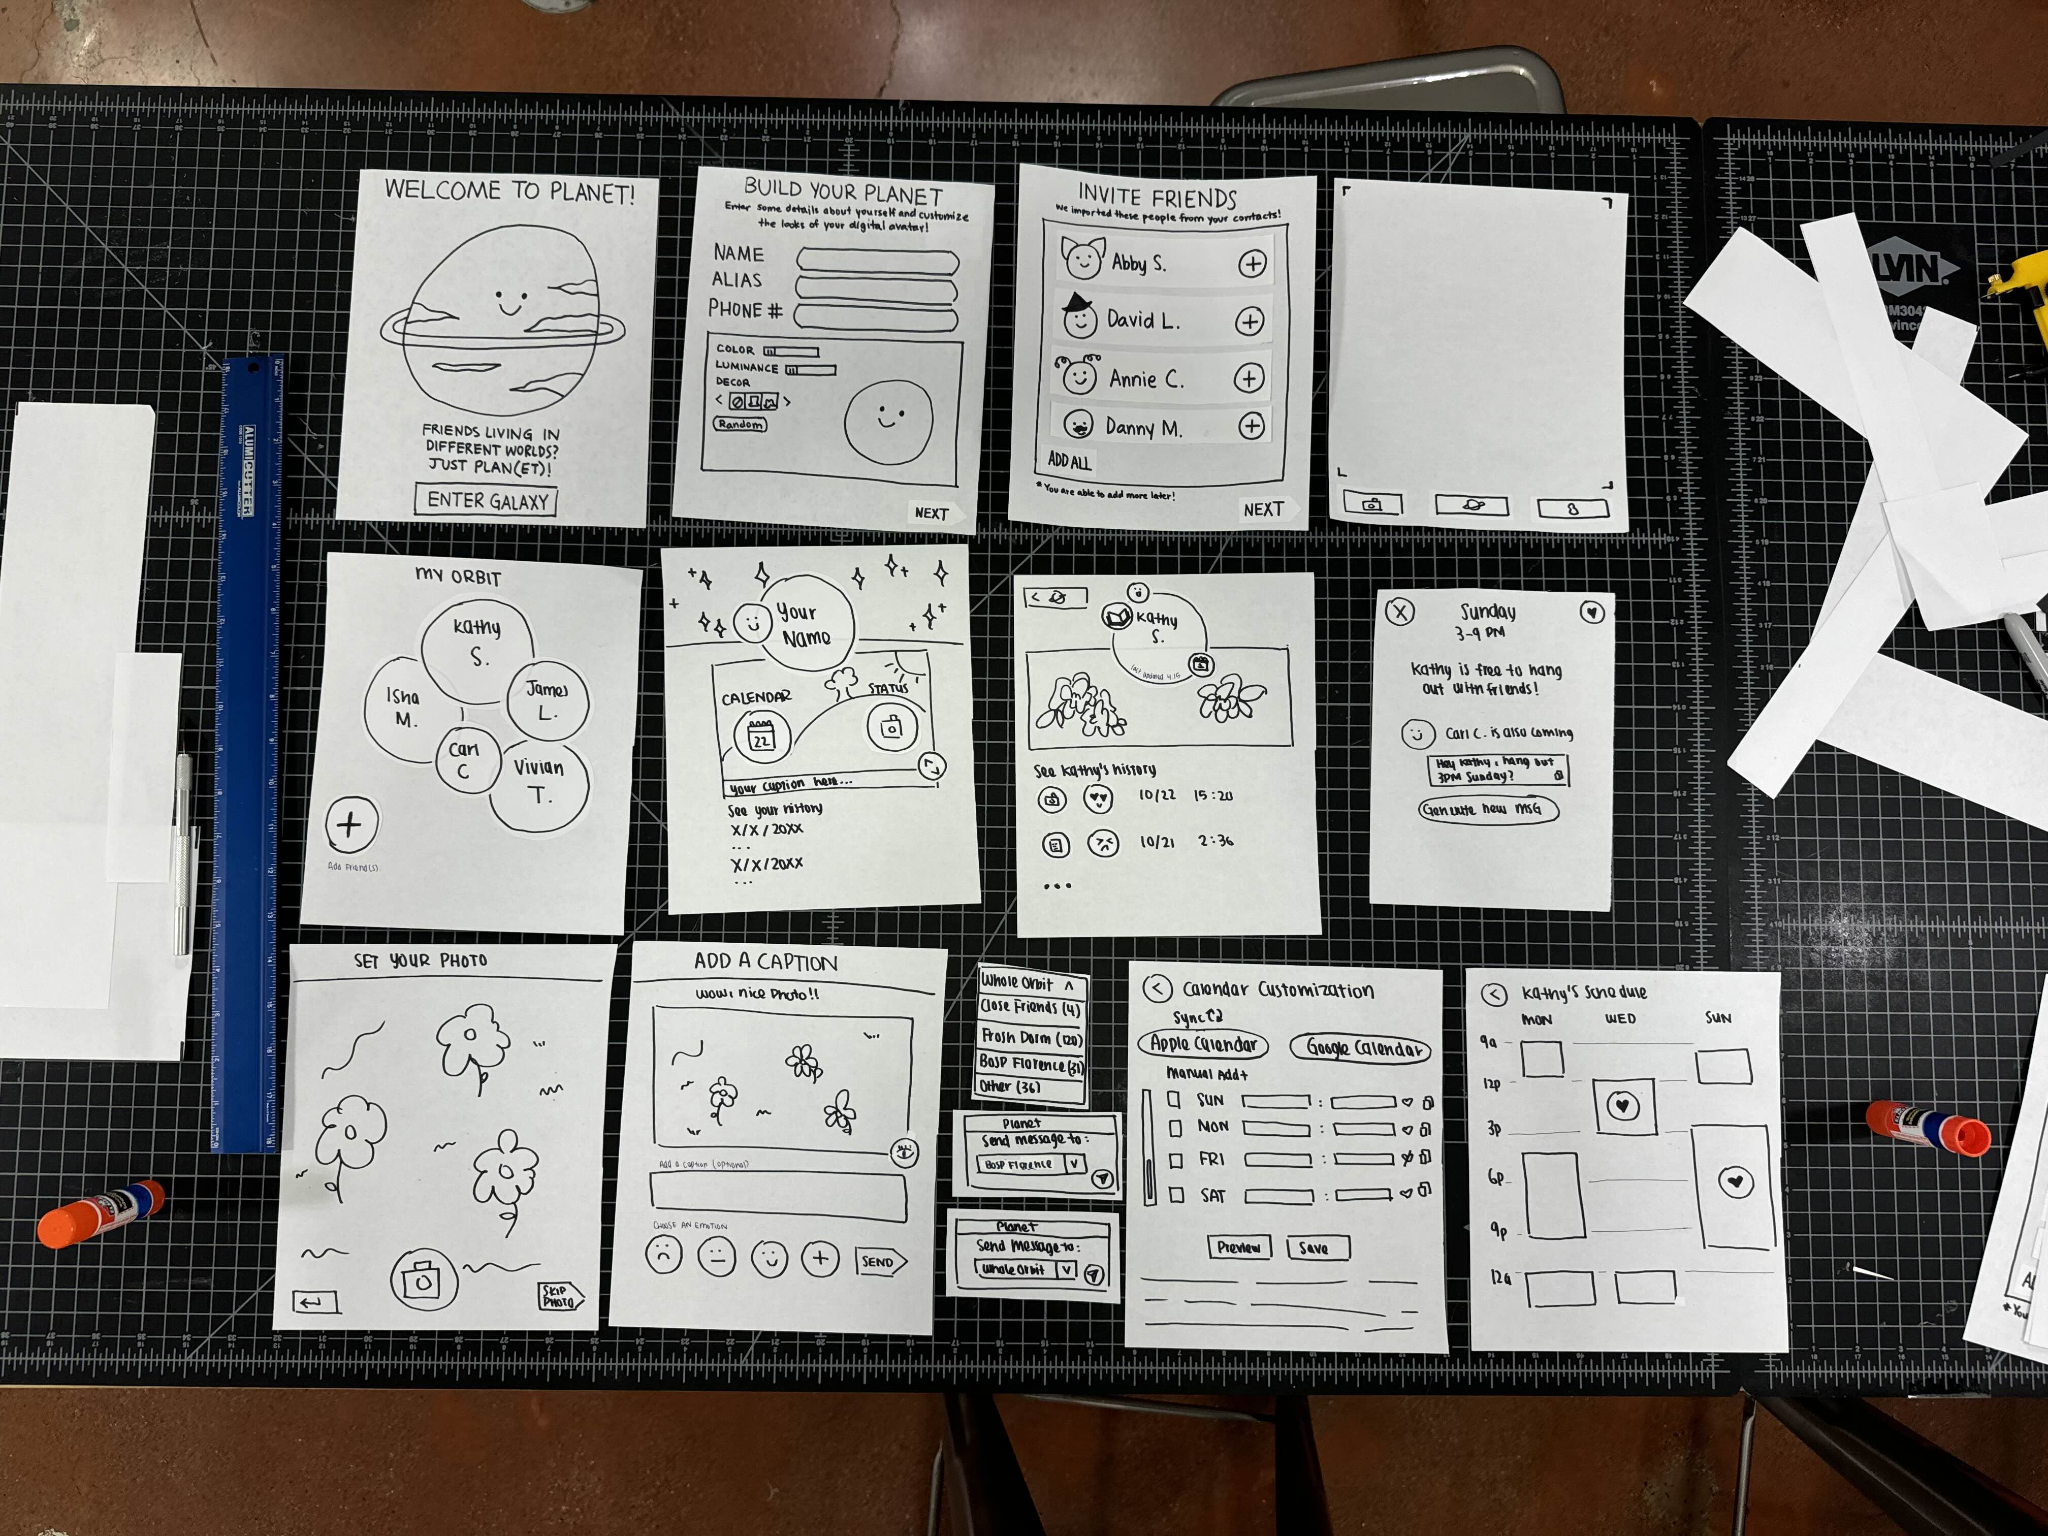 WELCOME TO PLANET!
FRIENDS LIVING IN
DIFFERENT WORLDS?
JUST PLAN(ET)!
ENTER GALAXY
BUILD YOUR PLANET
Enter some details about yourself and customize
the looks of your digital avatar!
NAME
ALIAS
PHONE #
COLOR
LUMINANCE
DECOR
< >
Random
NEXT
INVITE FRIENDS
We imported these people from your contacts!
Abby S. +
David L. +
Annie C. +
Danny M. +
ADD ALL
* You are able to add more later!
NEXT
MY ORBIT
Kathy
S.
Isha
M.
James
L.
Carl
C
Vivian
T.
+
Add Friend(s)
Your
Name
CALENDAR
22
STATUS
your caption here...
See your history
X/X/20XX
...
X/X/20XX
...
<
Kathy
S.
See Kathy's history
10/22 15:20
10/21 2:36
...
X
Sunday
3-9 PM
Kathy is free to hang
out with friends!
Carl C. is also coming
Hey Kathy, hang out
3PM Sunday?
Generate new msg
SET YOUR PHOTO
SKIP
PHOTO
ADD A CAPTION
Wow, nice photo!!
Add a caption (optional)
CHOOSE AN EMOTION
+
SEND
Whole Orbit ^
Close Friends (4)
Frosh Dorm (120)
BOSP Florence (31)
Other (36)
Planet
Send message to:
BOSP Florence v
Planet
Send Message to:
Whole Orbit v
< Calendar Customization
Sync
Apple Calendar
Google Calendar
Manual Add+
SUN :
MON :
FRI :
SAT :
Preview
Save
< Kathy's Schedule
MON WED SUN
9a
12p
3p
6p
9p
12a
ALUMICUTTER